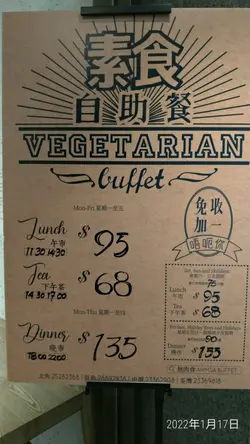 素食
自助餐
VEGETARIAN
buffet
Mon-Fri 星期一至五
Lunch
午市
11:30-14:30
$95
Tea
下午茶
14:30-17:00
$68
Mon-Thu 星期一至四
Dinner
晚市
18:00-22:00
$135
免收
加一
唔呃你
Sat, Sun and Holidays
Lunch
午市
$95
Tea
下午茶
$68
Dinner
晚市
$155
2022年1月17日